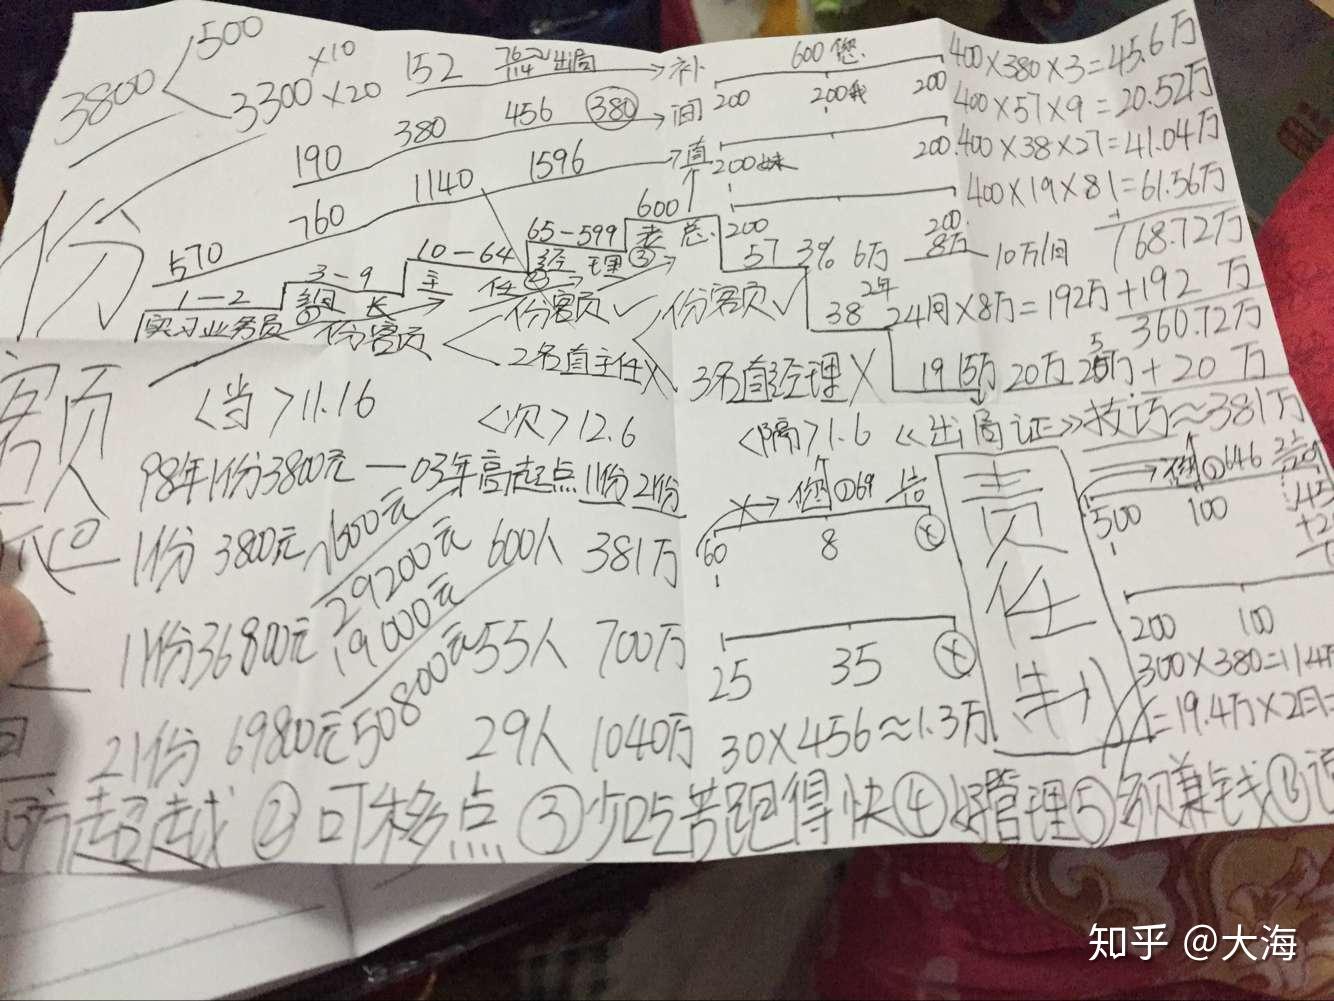 3800 500
3300 ×10
×20
152 76 114 出局 补
190 380 456 380 间
570 760 1140 1596 直
1—2 3—9 10—64 65—599 600
实习业务员 组长 主任 经理③ 老总
份额 份额 ✓ 份额 ✓
2名直主任 X
3名直经理 X
600您
200 200我 200
200妹 200
200 200
400×380×3=45.6万
400×57×9=20.52万
400×38×27=41.04万
400×19×81=61.56万
168.72万
57 3% 6万 8万 10万/间
38 2年 24月×8万=192万 +192万
360.72万
19 15万 20万 25万 +20万
份额
<当>11.16 <次>12.6 <隔>1.6 《出局证》技巧≈381万
98年1份3800元—03年高起点 11份 21份
1份 3800元 7600元 600人 381万
29200元
11份36800元 19000元 55人 700万
21份 69800元 50800元 29人 1040万
X→ ①69
60 8
25 35
30×456≈1.3万
责任制
①646
500 100
200 100
300×380=114万
=19.4万×2月=
超越 ②可移点 ③少吃苦跑得快 ④好管理 ⑤多赚钱 ⑥
知乎 @大海